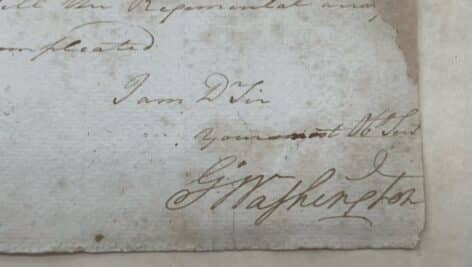 the Regimental
compleated
I am Dr Sir
Your most Obt Serv
Go Washington